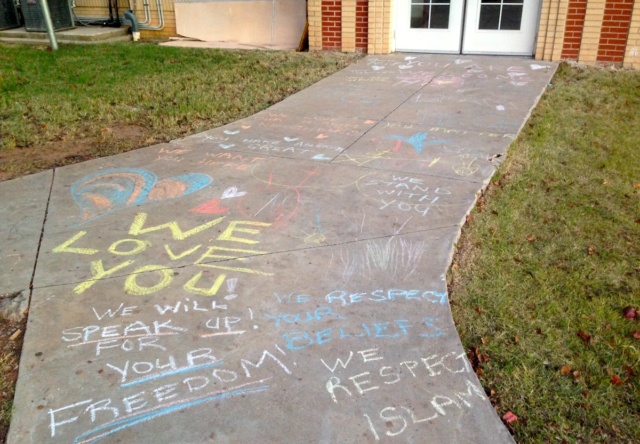 WE WANT
WE STAND
WITH
YOU
WE
LOVE
YOU!
WE WILL
SPEAK UP!
FOR
YOUR
FREEDOM!
WE RESPECT
YOUR
BELIEFS
WE
RESPECT
ISLAM